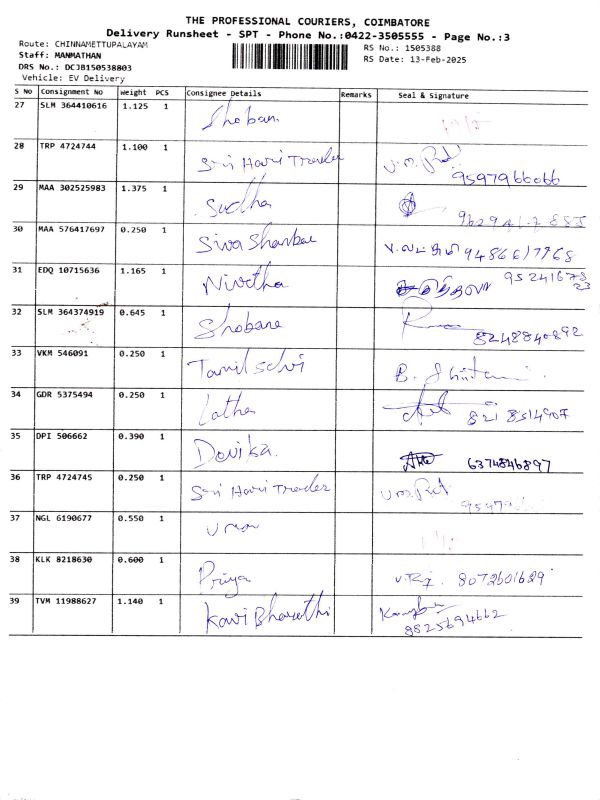 THE PROFESSIONAL COURIERS, COIMBATORE
Delivery Runsheet - SPT - Phone No.:0422-3505555 - Page No.:3
Route: CHINNAMETTUPALAYAM
Staff: MANMATHAN
DRS No.: DCJB150538803
Vehicle: EV Delivery
RS No.: 1505388
RS Date: 13-Feb-2025
S No Consignment No Weight PCS Consignee Details Remarks Seal & Signature
27 SLM 364410616 1.125 1 Shoban
28 TRP 4724744 1.100 1 Sri Hari Trader 9597966066
29 MAA 302525983 1.375 1 Sudha
30 MAA 576417697 0.250 1 Siva Shankar 9486617768
31 EDQ 10715636 1.165 1 Nivetha
32 SLM 364374919 0.645 1 Shobana 8248840892
33 VKM 546091 0.250 1 Tamil Selvi B.
34 GDR 5375494 0.250 1 Latha 8218514907
35 DPI 506662 0.390 1 Devika 6374846897
36 TRP 4724745 0.250 1 Sri Hari Trader
37 NGL 6190677 0.550 1
38 KLK 8218630 0.600 1 Priya 8072601629
39 TVM 11988627 1.140 1 Kavi Bharathi 8825694662